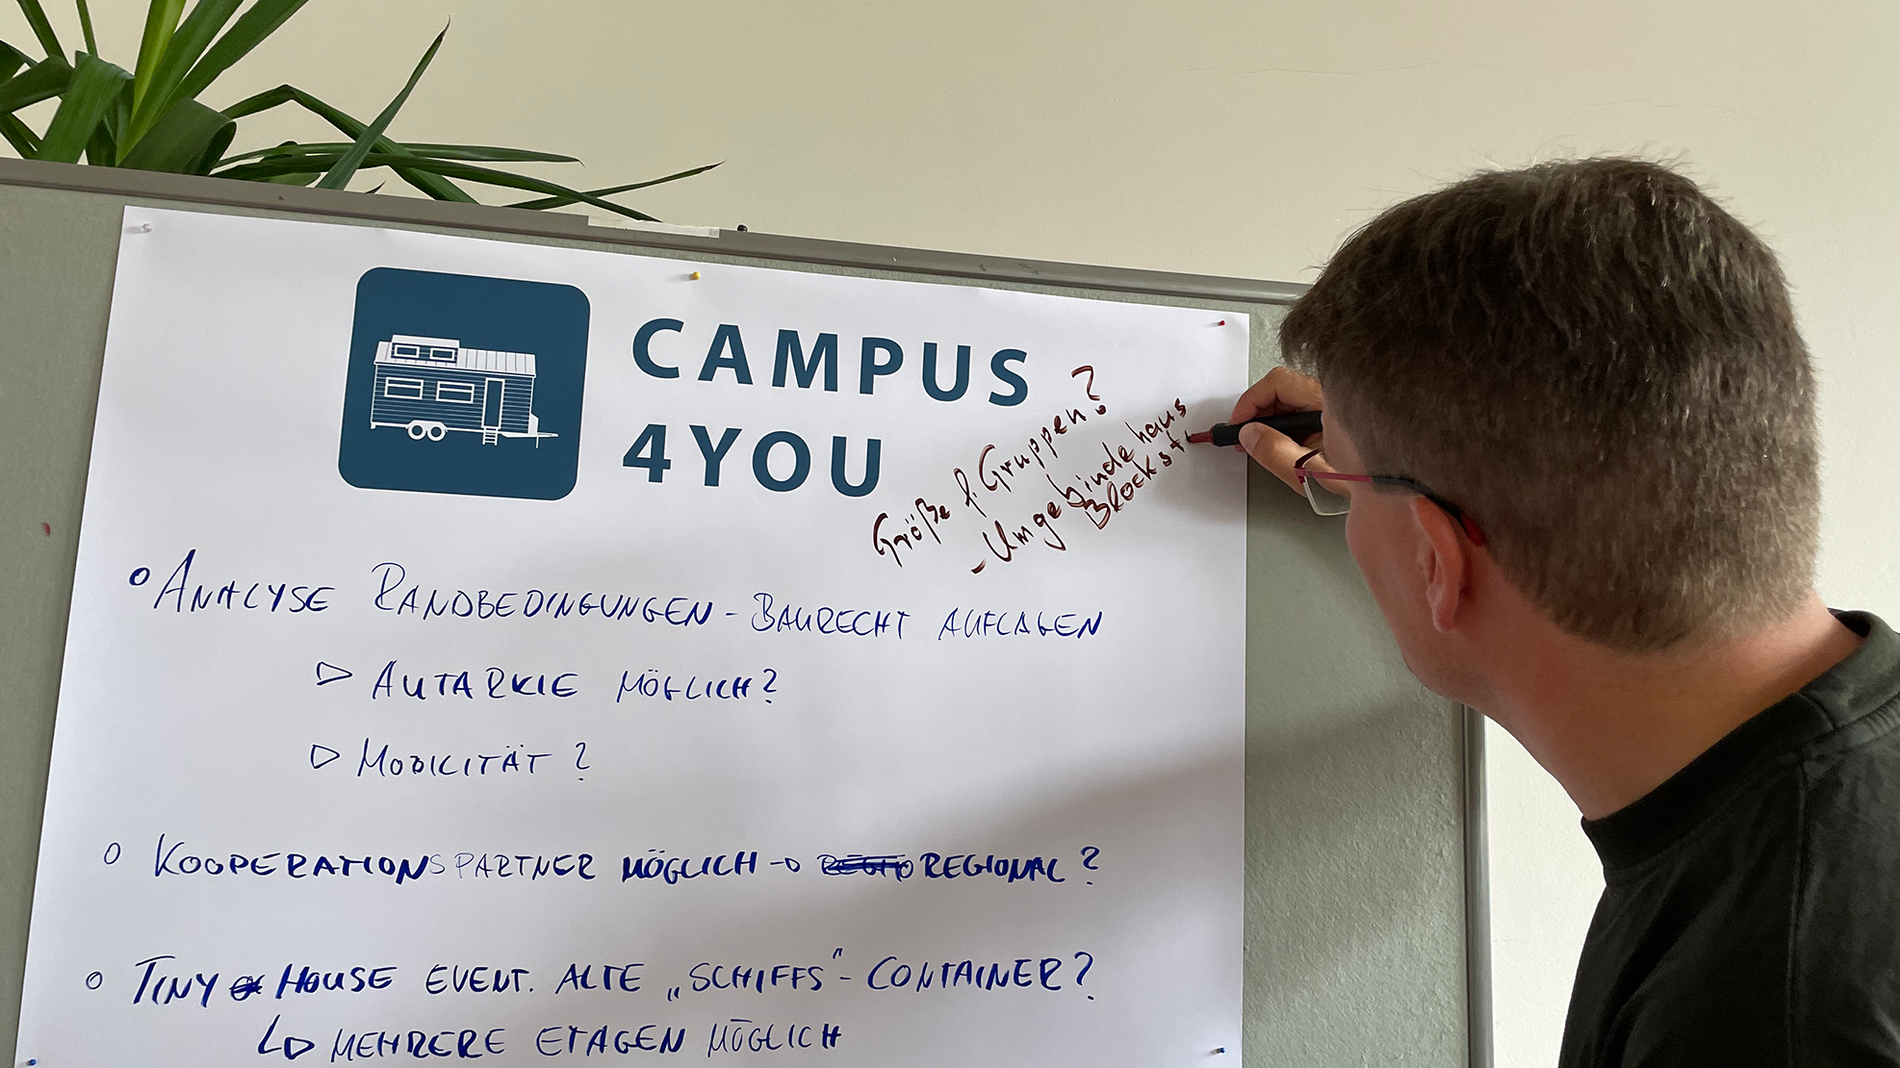 CAMPUS
4YOU
Größe f. Gruppen?
- Umgebindehaus
Blockst
° ANALYSE RANDBEDINGUNGEN - BAURECHT AUFLAGEN
▷ AUTARKIE MÖGLICH?
▷ MOBILITÄT?
○ KOOPERATIONSPARTNER MÖGLICH → REGIONAL?
○ TINY HOUSE EVENT. ALTE „SCHIFFS"-CONTAINER?
↳ MEHRERE ETAGEN MÖGLICH